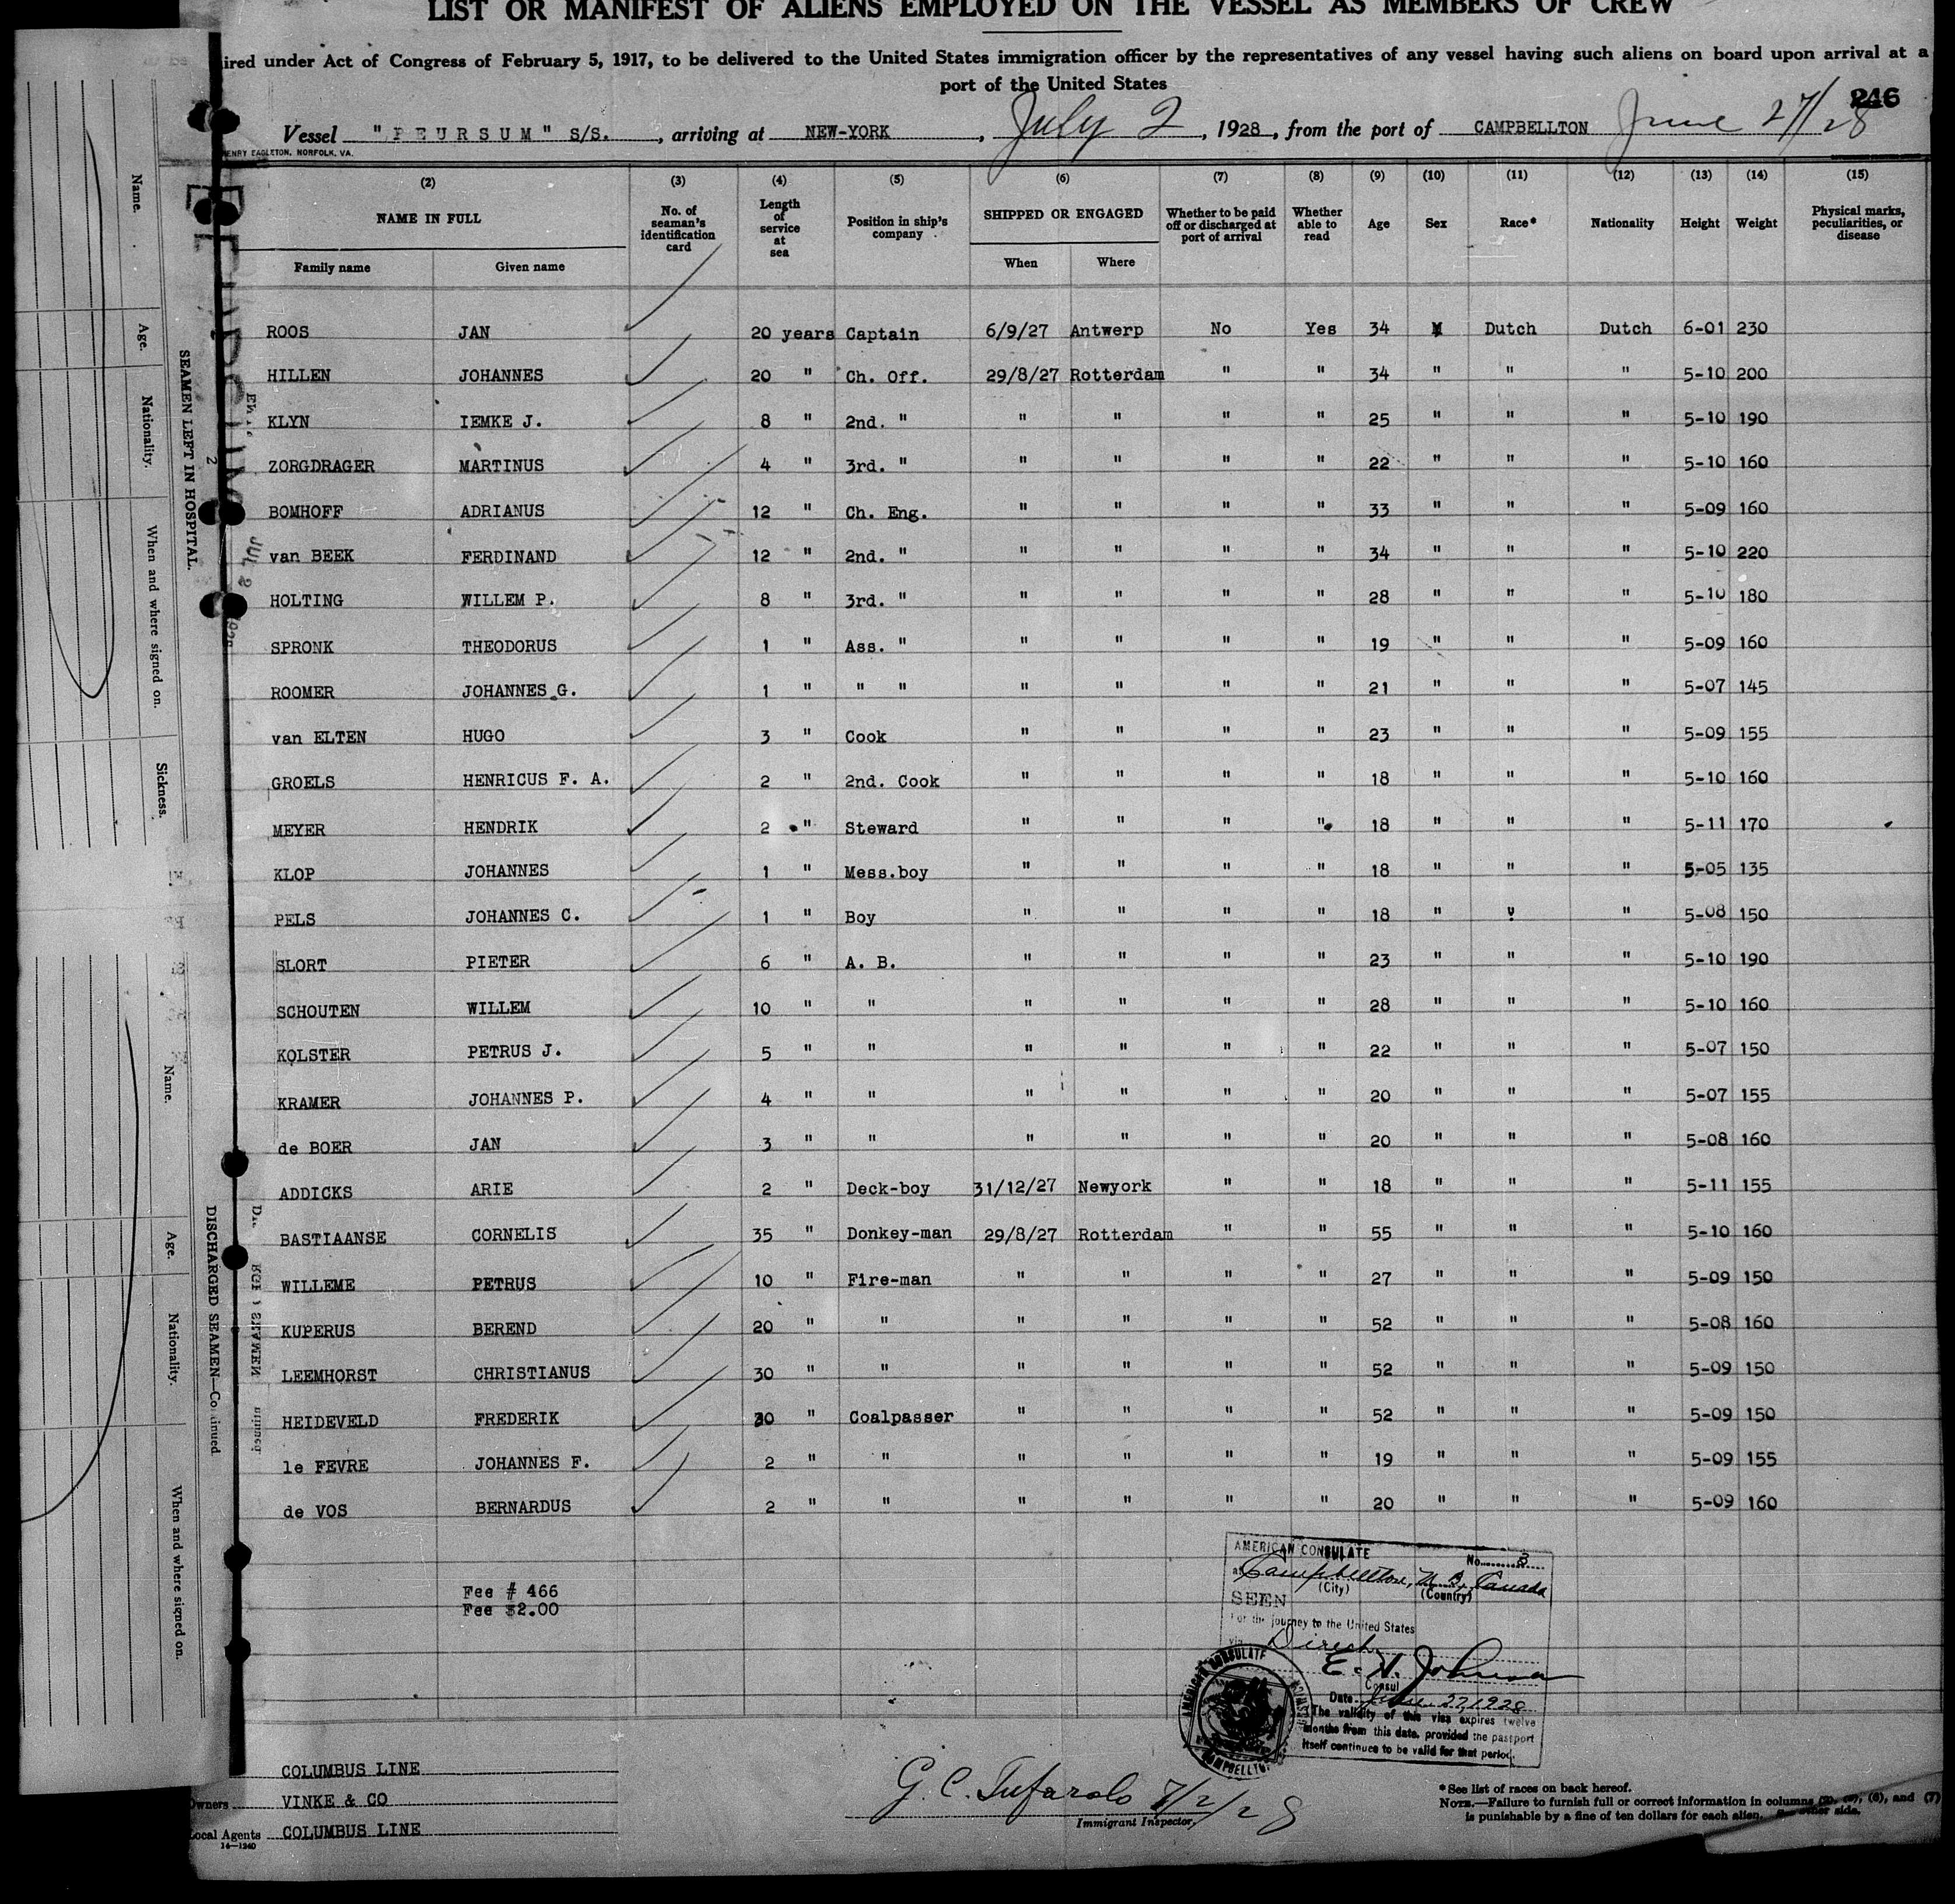 LIST OR MANIFEST OF ALIENS EMPLOYED ON THE VESSEL AS MEMBERS OF CREW
ired under Act of Congress of February 5, 1917, to be delivered to the United States immigration officer by the representatives of any vessel having such aliens on board upon arrival at a
port of the United States
246
Vessel "PEURSUM" S/S. , arriving at NEW-YORK , July 2 , 1928 , from the port of CAMPBELLTON June 27/28
HENRY EAGLETON, NORFOLK, VA.
(2) (3) (4) (5) (6) (7) (8) (9) (10) (11) (12) (13) (14) (15)
NAME IN FULL No. of seaman's identification card Length of service at sea Position in ship's company SHIPPED OR ENGAGED Whether to be paid off or discharged at port of arrival Whether able to read Age Sex Race* Nationality Height Weight Physical marks, peculiarities, or disease
Family name Given name When Where
ROOS JAN 20 years Captain 6/9/27 Antwerp No Yes 34 M Dutch Dutch 6-01 230
HILLEN JOHANNES 20 " Ch. Off. 29/8/27 Rotterdam " " 34 " " " 5-10 200
KLYN IEMKE J. 8 " 2nd. " " " " " 25 " " " 5-10 190
ZORGDRAGER MARTINUS 4 " 3rd. " " " " " 22 " " " 5-10 160
BOMHOFF ADRIANUS 12 " Ch. Eng. " " " " 33 " " " 5-09 160
van BEEK FERDINAND 12 " 2nd. " " " " " 34 " " " 5-10 220
HOLTING WILLEM P. 8 " 3rd. " " " " " 28 " " " 5-10 180
SPRONK THEODORUS 1 " Ass. " " " " " 19 " " " 5-09 160
ROOMER JOHANNES G. 1 " " " " " " " 21 " " " 5-07 145
van ELTEN HUGO 3 " Cook " " " " 23 " " " 5-09 155
GROELS HENRICUS F. A. 2 " 2nd. Cook " " " " 18 " " " 5-10 160
MEYER HENDRIK 2 " Steward " " " " 18 " " " 5-11 170
KLOP JOHANNES 1 " Mess.boy " " " " 18 " " " 5-05 135
PELS JOHANNES C. 1 " Boy " " " " 18 " " " 5-08 150
SLORT PIETER 6 " A. B. " " " " 23 " " " 5-10 190
SCHOUTEN WILLEM 10 " " " " " " 28 " " " 5-10 160
KOLSTER PETRUS J. 5 " " " " " " 22 " " " 5-07 150
KRAMER JOHANNES P. 4 " " " " " " 20 " " " 5-07 155
de BOER JAN 3 " " " " " " 20 " " " 5-08 160
ADDICKS ARIE 2 " Deck-boy 31/12/27 Newyork " " 18 " " " 5-11 155
BASTIAANSE CORNELIS 35 " Donkey-man 29/8/27 Rotterdam " " 55 " " " 5-10 160
WILLEME PETRUS 10 " Fire-man " " " " 27 " " " 5-09 150
KUPERUS BEREND 20 " " " " " " 52 " " " 5-08 160
LEEMHORST CHRISTIANUS 30 " " " " " " 52 " " " 5-09 150
HEIDEVELD FREDERIK 30 " Coalpasser " " " " 52 " " " 5-09 150
le FEVRE JOHANNES F. 2 " " " " " " 19 " " " 5-09 155
de VOS BERNARDUS 2 " " " " " " 20 " " " 5-09 160
Fee # 466
Fee $2.00
AMERICAN CONSULATE No. 3
at Campbellton, N.B. Canada
(City) (Country)
SEEN
For the journey to the United States
via Direct
E. H. Johnson
Consul
Date June 27, 1928
The validity of this visa expires twelve
months from this date, provided the passport
itself continues to be valid for that period.
AMERICAN CONSULATE
COLUMBUS LINE
Owners VINKE & CO
Local Agents COLUMBUS LINE
14—1240
G. C. Tufarolo 7/2/28
Immigrant Inspector
*See list of races on back hereof.
NOTE.—Failure to furnish full or correct information in columns (6), and (7)
is punishable by a fine of ten dollars for each alien. See other side.
SEAMEN LEFT IN HOSPITAL.
Name.
Age.
Nationality.
When and where signed on.
Sickness.
JUL 2 1928
DISCHARGED SEAMEN—Continued
Name.
Age.
Nationality.
When and where signed on.